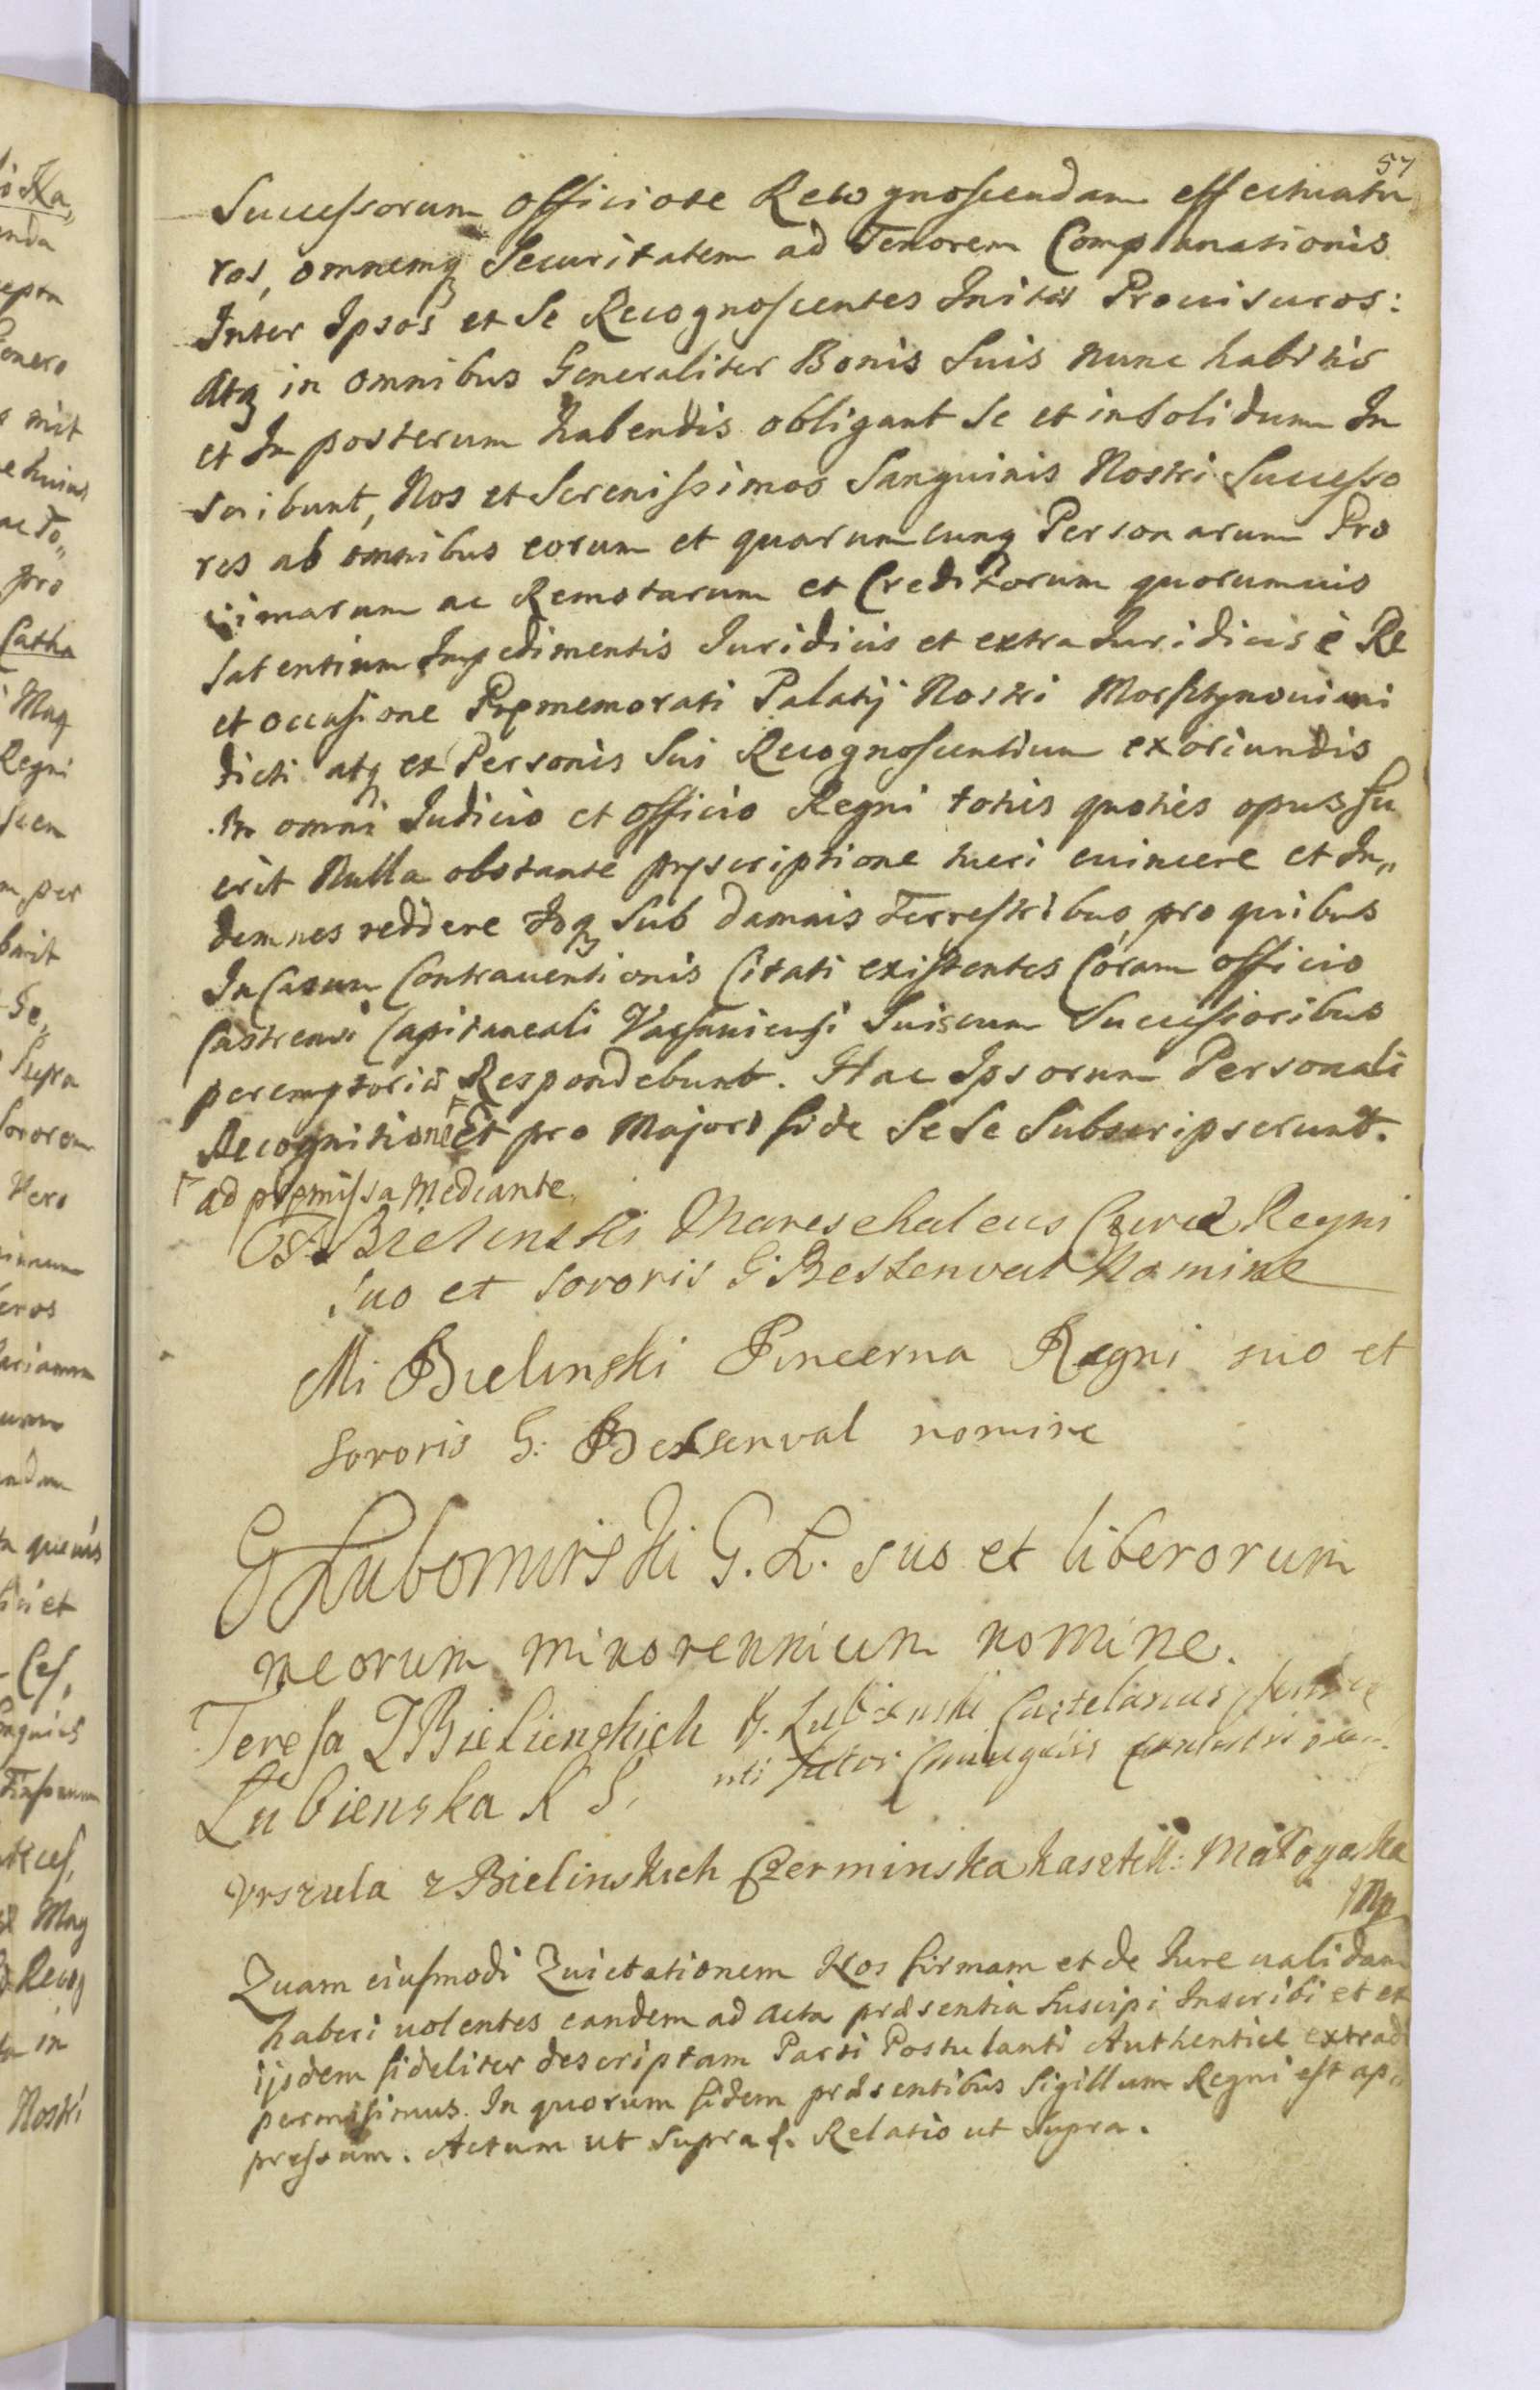 57
Successorum officiose Recognoscendam effectuatu
ros, omnemq Securitatem ad Tenorem Complanationis
Inter Ipsos et Se Recognoscentes Initæ Prouisuros:
Atq in omnibus Generaliter Bonis Suis nunc habitis
et In posterum habendis obligant Se et insolidum In
scribunt, Nos et Serenissimos Sanguinis Nostri Successo
res ab omnibus eorum et quorumcunq Personarum Pro
ximarum ac Remotarum et Creditorum quorumuis
Satentium Impedimentis Iuridicis et extra Iuridicis è Re
et occasione Præmemorati Palatij Nostri Morsztynouiani
dicti atq ex Personis Sui Recognoscentium exoriundis
In omni Iudicio et officio Regni toties quoties opus fu
erit Nulla obstante præscriptione tueri euincere et In„
demnes reddere Idq Sub damnis Terrestribus, pro quibus
In Casum Contrauentionis Citati existentes Coram officio
Castrensi Capitaneali Varsauiensi Suiscum Successoribus
peremptorie Respondebunt. Hac Ipsorum Personali
Recognitione Et pro Majori fide Sese Subscripserunt.
ad præmissa Mediante
F Bielinski Mareschalcus Curiæ Regni
suo et sororis G Bestenval Nomine
Mi Bielinski Pincerna Regni suo et
sororis G: Bessenval nomine
G Lubomirski G. L. suo et liberorum
meorum minorennium nomine.
Teresa Z Bielienskich
Lubienska K S,
Lubienski Castelanus
uti Tutor
Vrszula z Bielinskich Czerminska Kasztell: Małogaska
Mp
Quam eiusmodi Quietationem Nos firmam et de Iure ualidam
haberi uolentes eandem ad Acta præsentia Suscipi Inscribi et ex
ijsdem fideliter descriptam Parti Postulanti Authentice extradi
permisimus. In quorum fidem præsentibus Sigillum Regni est ap„
pressum. Actum ut Supra. Relatio ut Supra.